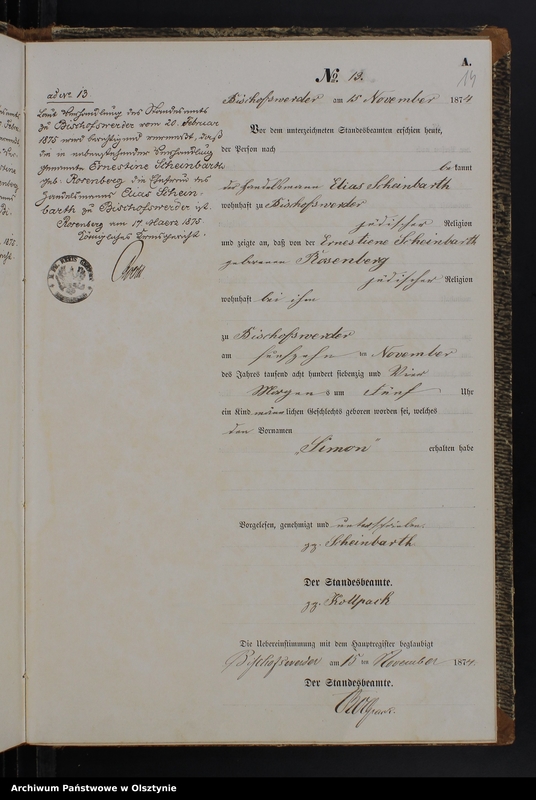 ad No. 13
Laut Verhandlung des Standesamts
zu Bischofswerder vom 20. Februar
1875 wird berichtigend vermerkt, daß
die in nebenstehender Verhandlung
genannte Ernestine Scheinbarth
geb. Rosenberg die Ehefrau des
Handelsmanns Elias Schein-
barth zu Bischofswerder ist.
Rosenberg am 17 Maerz 1875
Königliches Kreisgericht.
A.
14
No. 13.
Bischofswerder am 15 November 1874
Vor dem unterzeichneten Standesbeamten erschien heute,
der Person nach
bekannt
der Handelsmann Elias Scheinbarth
wohnhaft zu Bischofswerder
jüdischer Religion
und zeigte an, daß von der Ernestiene Scheinbarth
geborenen Rosenberg
jüdischer Religion
wohnhaft bei ihm
zu Bischofswerder
am fünfzehn ten November
des Jahres tausend acht hundert siebenzig und Vier
Morgens um Fünf Uhr
ein Kind männlichen Geschlechts geboren worden sei, welches
den Vornamen
„Simon“ erhalten habe
Vorgelesen, genehmigt und unterschrieben.
gz. Scheinbarth
Der Standesbeamte.
gz. Kollpack
Die Uebereinstimmung mit dem Hauptregister beglaubigt
Bischofswerder am 15 ten November 1874.
Der Standesbeamte.
Archiwum Państwowe w Olsztynie